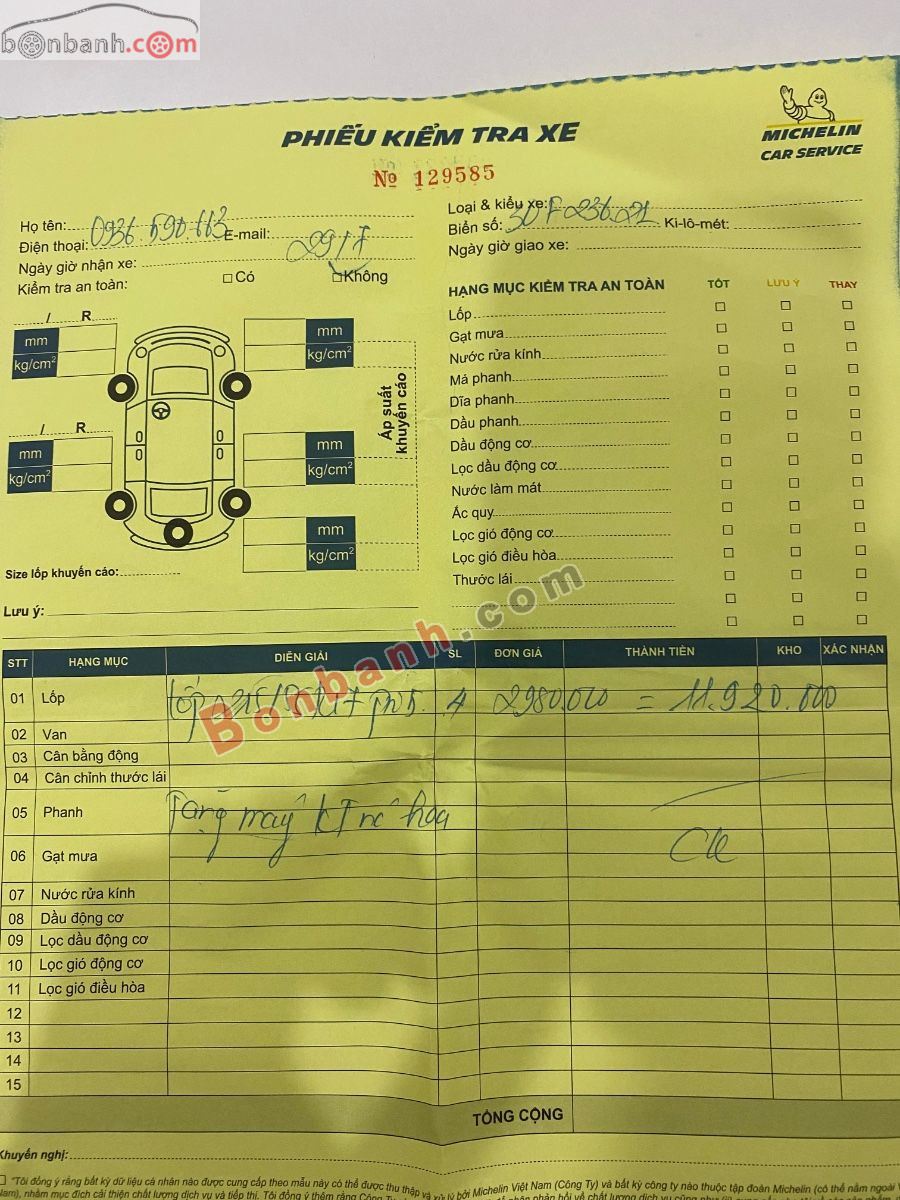 bonbanh.com
PHIẾU KIỂM TRA XE
MICHELIN
CAR SERVICE
Nº 129585
Họ tên:
Điện thoại: 0936.590.113 E-mail:
Ngày giờ nhận xe: 29/7
Kiểm tra an toàn: Có Không
Loại & kiểu xe:
Biển số: 30F 236.21 Ki-lô-mét:
Ngày giờ giao xe:
/ R
mm
kg/cm²
mm
kg/cm²
/ R
mm
kg/cm²
mm
kg/cm²
mm
kg/cm²
Áp suất
khuyến cáo
Size lốp khuyến cáo:
Lưu ý:
HẠNG MỤC KIỂM TRA AN TOÀN TỐT LƯU Ý THAY
Lốp
Gạt mưa
Nước rửa kính
Má phanh
Dĩa phanh
Dầu phanh
Dầu động cơ
Lọc dầu động cơ
Nước làm mát
Ắc quy
Lọc gió động cơ
Lọc gió điều hòa
Thước lái
Bonbanh.com
STT HẠNG MỤC DIỄN GIẢI SL ĐƠN GIÁ THÀNH TIỀN KHO XÁC NHẬN
01 Lốp lốp 4 2980.000 = 11.920.000
02 Van
03 Cân bằng động
04 Cân chỉnh thước lái
05 Phanh Tặng máy
06 Gạt mưa
07 Nước rửa kính
08 Dầu động cơ
09 Lọc dầu động cơ
10 Lọc gió động cơ
11 Lọc gió điều hòa
12
13
14
15
TỔNG CỘNG
Khuyến nghị:
"Tôi đồng ý rằng bất kỳ dữ liệu cá nhân nào được cung cấp theo mẫu này có thể được thu thập và xử lý bởi Michelin Việt Nam (Công Ty) và bất kỳ công ty nào thuộc tập đoàn Michelin (có thể nằm ngoài
Nam), nhằm mục đích cải thiện chất lượng dịch vụ và tiếp thị. Tôi đồng ý thêm rằng